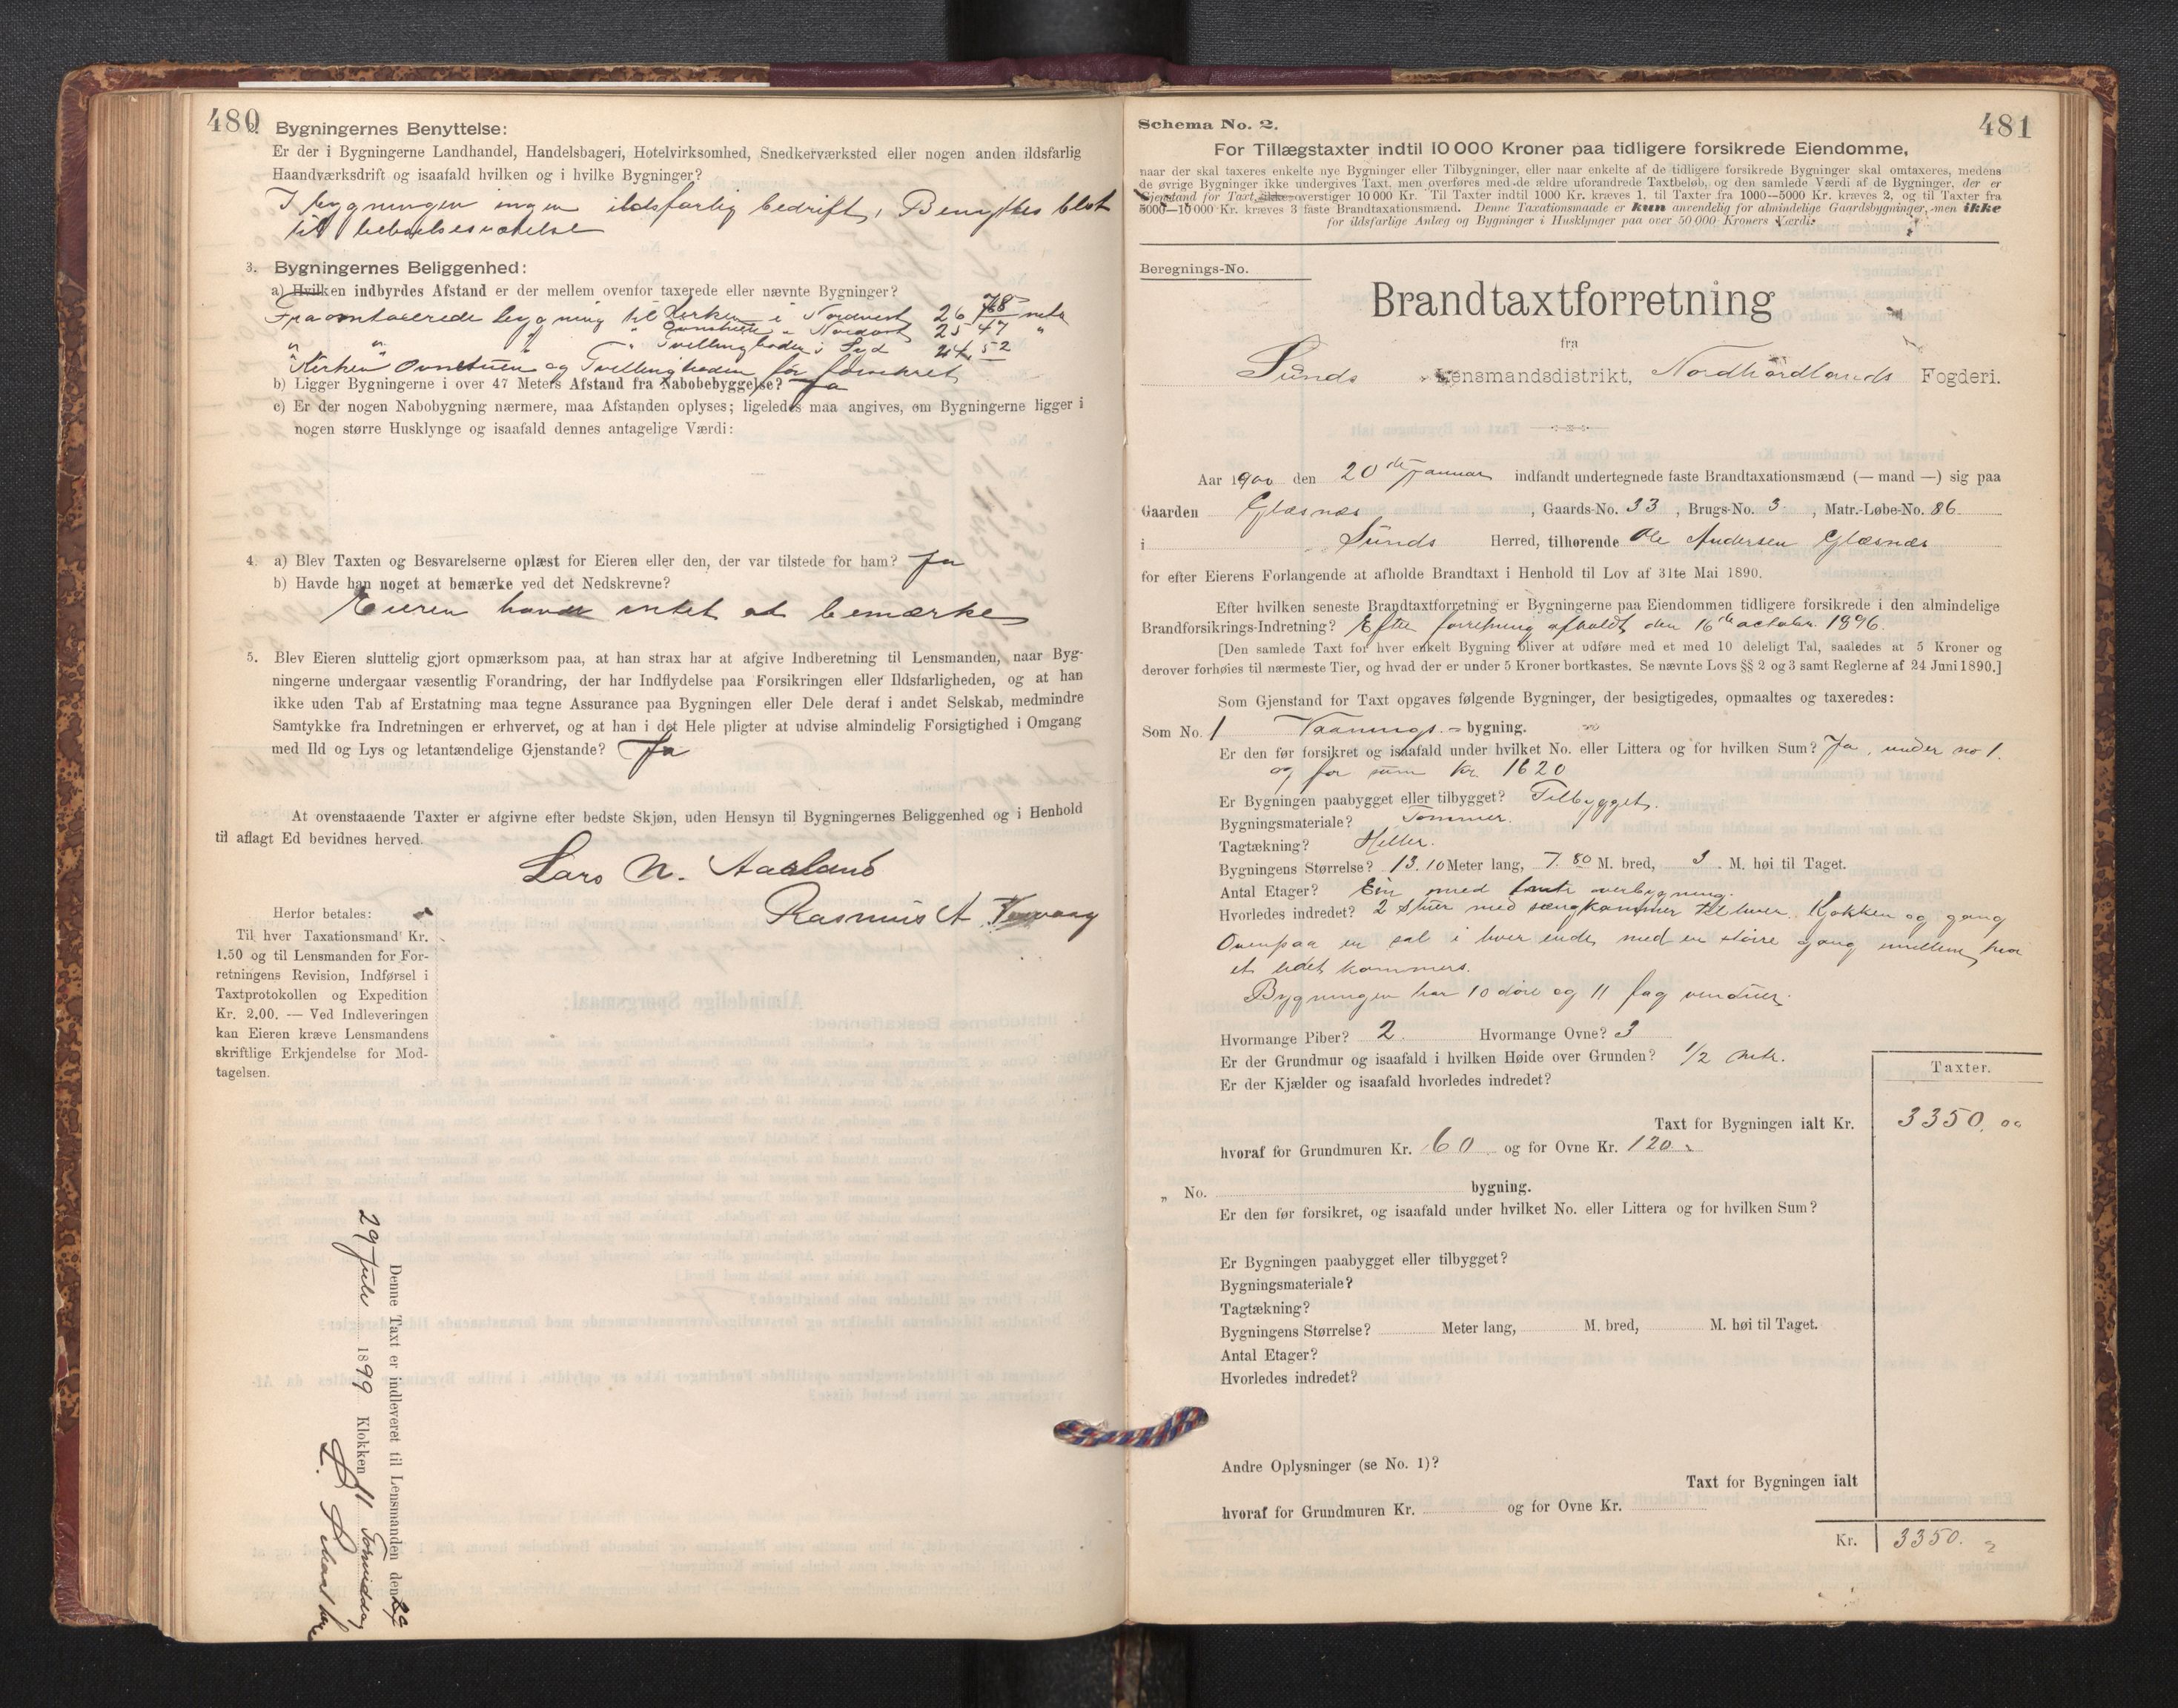 480
2. Bygningernes Benyttelse:
Er der i Bygningerne Landhandel, Handelsbageri, Hotelvirksomhed, Snedkerværksted eller nogen anden ildsfarlig
Haandværksdrift og isaafald hvilken og i hvilke Bygninger?
I bygningen ingen ildsfarlig bedrift, Benyttes blot
til bebo
3. Bygningernes Beliggenhed:
a) Hvilken indbyrdes Afstand er der mellem ovenfor taxerede eller nævnte Bygninger?
Fra omtaxerede bygning til Kirken i Nordvest 26 78 meter
" " " Nordost 25 47 "
" " " i Syd 24 52
Kirken og for forsikret
b) Ligger Bygningerne i over 47 Meters Afstand fra Nabobebyggelse? Ja
c) Er der nogen Nabobygning nærmere, maa Afstanden oplyses; ligeledes maa angives, om Bygningerne ligger i
nogen større Husklynge og isaafald dennes antagelige Værdi:
4. a) Blev Taxten og Besvarelserne oplæst for Eieren eller den, der var tilstede for ham? Ja
b) Havde han noget at bemærke ved det Nedskrevne?
Eieren havde intet at bemærke
5. Blev Eieren sluttelig gjort opmærksom paa, at han strax har at afgive Indberetning til Lensmanden, naar Byg-
ningerne undergaar væsentlig Forandring, der har Indflydelse paa Forsikringen eller Ildsfarligheden, og at han
ikke uden Tab af Erstatning maa tegne Assurance paa Bygningen eller Dele deraf i andet Selskab, medmindre
Samtykke fra Indretningen er erhvervet, og at han i det Hele pligter at udvise almindelig Forsigtighed i Omgang
med Ild og Lys og letantændelige Gjenstande? Ja
At ovenstaaende Taxter er afgivne efter bedste Skjøn, uden Hensyn til Bygningernes Beliggenhed og i Henhold
til aflagt Ed bevidnes herved.
Lars N. Aasland
Rasmus A.
Herfor betales:
Til hver Taxationsmand Kr.
1.50 og til Lensmanden for For-
retningens Revision, Indførsel i
Taxtprotokollen og Expedition
Kr. 2.00. — Ved Indleveringen
kan Eieren kræve Lensmandens
skriftlige Erkjendelse for Mod-
tagelsen.
Denne Taxt er indleveret til Lensmanden den 29
29 Juli 1899 Klokken 11 Formiddag
481
Schema No. 2.
For Tillægstaxter indtil 10 000 Kroner paa tidligere forsikrede Eiendomme,
naar der skal taxeres enkelte nye Bygninger eller Tilbygninger, eller naar enkelte af de tidligere forsikrede Bygninger skal omtaxeres, medens
de øvrige Bygninger ikke undergives Taxt, men overføres med de ældre uforandrede Taxtbeløb, og den samlede Værdi af de Bygninger, der er
Gjenstand for Taxt, ikke overstiger 10 000 Kr. Til Taxter indtil 1000 Kr. kræves 1, til Taxter fra 1000—5000 Kr. kræves 2, og til Taxter fra
5000—10 000 Kr. kræves 3 faste Brandtaxationsmænd. Denne Taxationsmaade er kun anvendelig for almindelige Gaardsbygninger, men ikke
for ildsfarlige Anlæg og Bygninger i Husklynger paa over 50 000 Kroners Værdi.
Beregnings-No.
Brandtaxtforretning
fra
Sunds Lensmandsdistrikt, Nordhordlands Fogderi.
Aar 1900 den 20de Januar indfandt undertegnede faste Brandtaxationsmænd (— mand —) sig paa
Gaarden Glæsnæs, Gaards-No. 33, Brugs-No. 3, Matr.-Løbe-No. 86
i Sunds Herred, tilhørende Ole Andersen Glæsnæs
for efter Eierens Forlangende at afholde Brandtaxt i Henhold til Lov af 31te Mai 1890.
Efter hvilken seneste Brandtaxtforretning er Bygningerne paa Eiendommen tidligere forsikrede i den almindelige
Brandforsikrings-Indretning? Efter forretning afholdt den 16de october 1896.
[Den samlede Taxt for hver enkelt Bygning bliver at udføre med et med 10 deleligt Tal, saaledes at 5 Kroner og
derover forhøies til nærmeste Tier, og hvad der er under 5 Kroner bortkastes. Se nævnte Lovs §§ 2 og 3 samt Reglerne af 24 Juni 1890.]
Som Gjenstand for Taxt opgaves følgende Bygninger, der besigtigedes, opmaaltes og taxeredes:
Som No. 1 Vaanings-bygning.
Er den før forsikret og isaafald under hvilket No. eller Littera og for hvilken Sum? Ja, under no 1.
og for sum Kr 1620
Er Bygningen paabygget eller tilbygget? Tilbygget.
Bygningsmateriale? Tømmer.
Tagtækning? Heller.
Bygningens Størrelse? 13.10 Meter lang, 7.80 M. bred, 3 M. høi til Taget.
Antal Etager? Ein med overbygning.
Hvorledes indredet? 2 stuer med sengkammer til hver. Kjøkken og gang
Ovenpaa en sal i hver ende med en større gang imellem, hvor
et lidet kammers.
Bygningen har 10 døre og 11 fag vinduer.
Hvormange Piber? 2 Hvormange Ovne? 3
Er der Grundmur og isaafald i hvilken Høide over Grunden? 1/2 mtr.
Er der Kjælder og isaafald hvorledes indredet?
Taxter.
Taxt for Bygningen ialt Kr. 3350.00
hvoraf for Grundmuren Kr. 60 og for Ovne Kr. 120
„ No. bygning.
Er den før forsikret, og isaafald under hvilket No. eller Littera og for hvilken Sum?
Er Bygningen paabygget eller tilbygget?
Bygningsmateriale?
Tagtækning?
Bygningens Størrelse? Meter lang, M. bred, M. høi til Taget.
Antal Etager?
Hvorledes indredet?
Andre Oplysninger (se No. 1)?
Taxt for Bygningen ialt
hvoraf for Grundmuren Kr. og for Ovne Kr.
Kr. 3350.